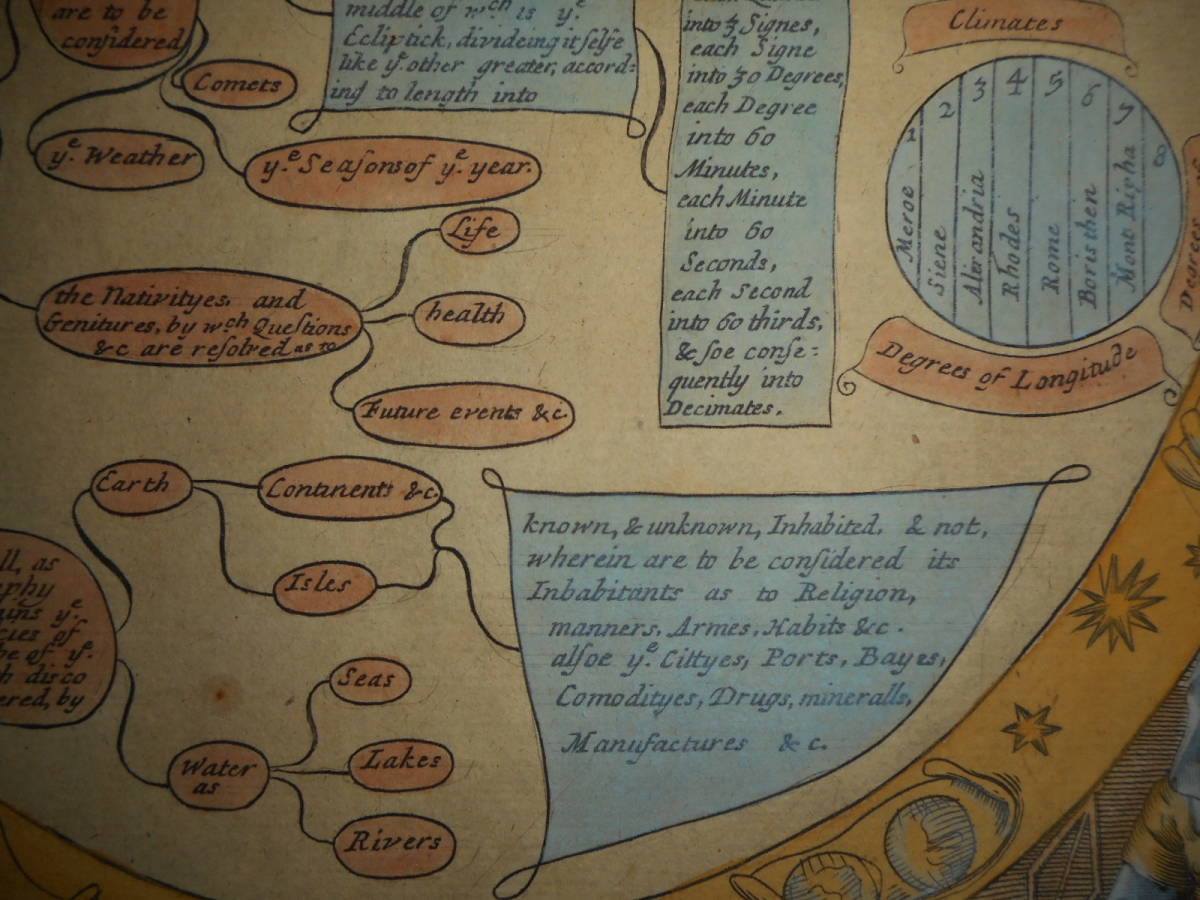 are to be
considered
Comets
yͤ. Weather
yͤ Seasons of yͤ. year.
middle of wᶜʰ is yͤ.
Ecliptick, divideing it selfe
like yͤ. other greater, accord=
ing to length into
into 3 Signes,
each Signe
into 30 Degrees,
each Degree
into 60
Minutes,
each Minute
into 60
Seconds,
each Second
into 60 thirds,
& soe conse=
quently into
Decimates.
Climates
1 2 3 4 5 6 7 8
Meroe
Siene
Alexandria
Rhodes
Rome
Boristhen
Mont Ripha
Degrees of Longitude
Degrees
the Nativityes, and
Genitures, by wᶜʰ Questions
&c are resolved as to
Life
health
Future events &c.
Earth
Continents &c.
Isles
known, & unknown, Inhabited, & not,
wherein are to be considered its
Inhabitants as to Religion,
manners, Armes, Habits &c.
alsoe yͤ. Cittyes, Ports, Bayes,
Comodityes, Drugs, mineralls,
Manufactures &c.
ll, as
phy
ins yͤ.
cies of
be of yͤ.
h disco
ered, by
Water
as
Seas
Lakes
Rivers